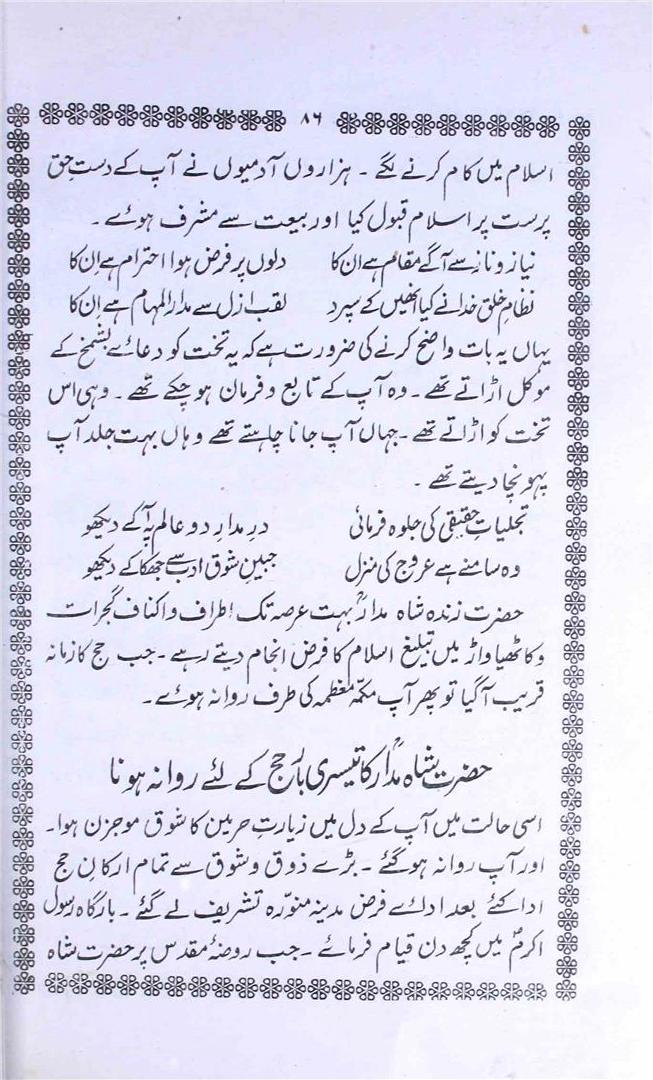 ۸۶
اسلام میں کام کرنے لگے ۔ ہزاروں آدمیوں نے آپ کے دست حق
پرست پر اسلام قبول کیا اور بیعت سے مشرف ہوئے ۔
نیاز و ناز سے آگے مقام ہے ان کا دلوں پر فرض ہوا احترام ہے اِن کا
نظامِ خلق خدا نے کیا انھیں کے سپرد لقب ازل سے مدار المہام ہے اِن کا
یہاں یہ بات واضح کرنے کی ضرورت ہے کہ یہ تخت کو دعائے بشمخ کے
موکل اڑاتے تھے ۔ وہ آپ کے تابع و فرمان ہو چکے تھے ۔ وہی اس
تخت کو اڑاتے تھے ۔ جہاں آپ جانا چاہتے تھے وہاں بہت جلد آپ
پہونچا دیتے تھے ۔
تجلیاتِ حقیقی کی جلوہ فرمائی درِ مدارِ دو عالم پہ آ کے دیکھو
وہ سامنے ہے عروج کی منزل جبینِ شوق ادب سے جھکا کے دیکھو
حضرت زندہ شاہ مدارؒ بہت عرصہ تک اطراف و اکناف گجرات
و کاٹھیاواڑ میں تبلیغ اسلام کا فرض انجام دیتے رہے ۔ جب حج کا زمانہ
قریب آگیا تو پھر آپ مکّہ معظمہ کی طرف روانہ ہوئے ۔
حضرت شاہ مدارؒ کا تیسری بار حج کے لئے روانہ ہونا
اسی حالت میں آپ کے دل میں زیارتِ حرمین کا شوق موجزن ہوا ۔
اور آپ روانہ ہو گئے ۔ بڑے ذوق و شوق سے تمام ارکانِ حج
ادا کئے بعد ادائے فرض مدینہ منوّرہ تشریف لے گئے ۔ بارگاہ رسول
اکرمؐ میں کچھ دن قیام فرمائے ۔ جب روضۂ مقدس پر حضرت شاہ